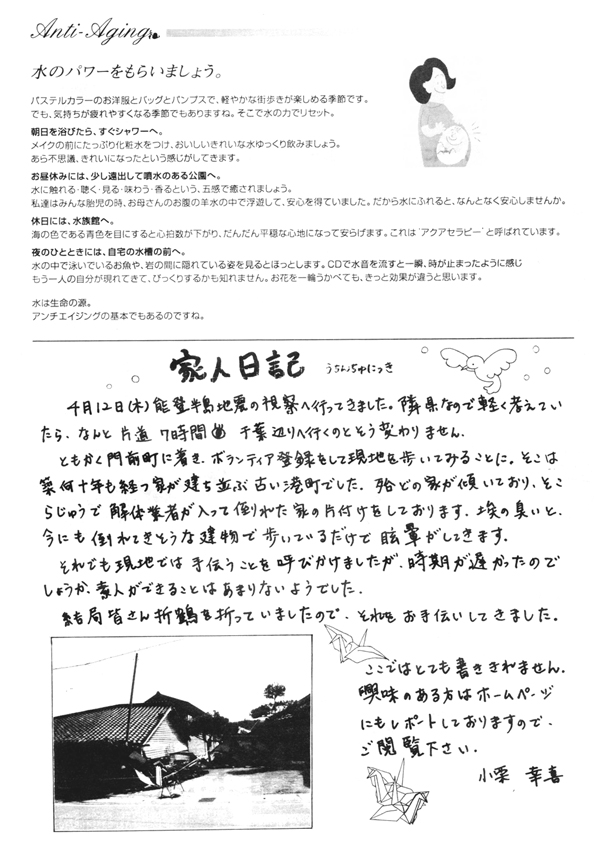 Anti-Aging
水のパワーをもらいましょう。
パステルカラーのお洋服とバッグとパンプスで、軽やかな街歩きが楽しめる季節です。
でも、気持ちが疲れやすくなる季節でもありますね。そこで水の力でリセット。
朝日を浴びたら、すぐシャワーへ。
メイクの前にたっぷり化粧水をつけ、おいしいきれいな水ゆっくり飲みましょう。
あら不思議、きれいになったという感じがしてきます。
お昼休みには、少し遠出して噴水のある公園へ。
水に触れる・聴く・見る・味わう・香るという、五感で癒されましょう。
私達はみんな胎児の時、お母さんのお腹の羊水の中で浮遊して、安心を得ていました。だから水にふれると、なんとなく安心しませんか。
休日には、水族館へ。
海の色である青色を目にすると心拍数が下がり、だんだん平穏な心地になって安らげます。これは ‘アクアセラピー’ と呼ばれています。
夜のひとときには、自宅の水槽の前へ。
水の中で泳いでいるお魚や、岩の間に隠れている姿を見るとほっとします。CDで水音を流すと一瞬、時が止まったように感じ
もう一人の自分が現れてきて、びっくりするかも知れません。お花を一輪うかべても、きっと効果が違うと思います。
水は生命の源。
アンチエイジングの基本でもあるのですね。
家人日記 うちんちゅにっき
4月12日(木)能登半島地震の視察へ行ってきました。隣県なので軽く考えてい
たら、なんと片道 7時間 千葉辺りへ行くのとそう変わりません。
ともかく門前町に着き、ボランティア登録をして現地を歩いてみることに。そこは
築何十年も経つ家が建ち並ぶ古い港町でした。殆どの家が傾いており、そこ
らじゅうで解体業者が入って倒れた家の片付けをしております。埃の臭いと、
今にも倒れてきそうな建物で歩いているだけで眩暈がしてきます。
それでも現地では手伝うことを呼びかけましたが、時期が遅かったので
しょうか、素人ができることはあまりないようでした。
結局皆さん折鶴を折っていましたので、それをお手伝いしてきました。
ここではとても書ききれません。
興味のある方はホームページ
にもレポートしておりますので、
ご閲覧下さい。
小栗 幸喜